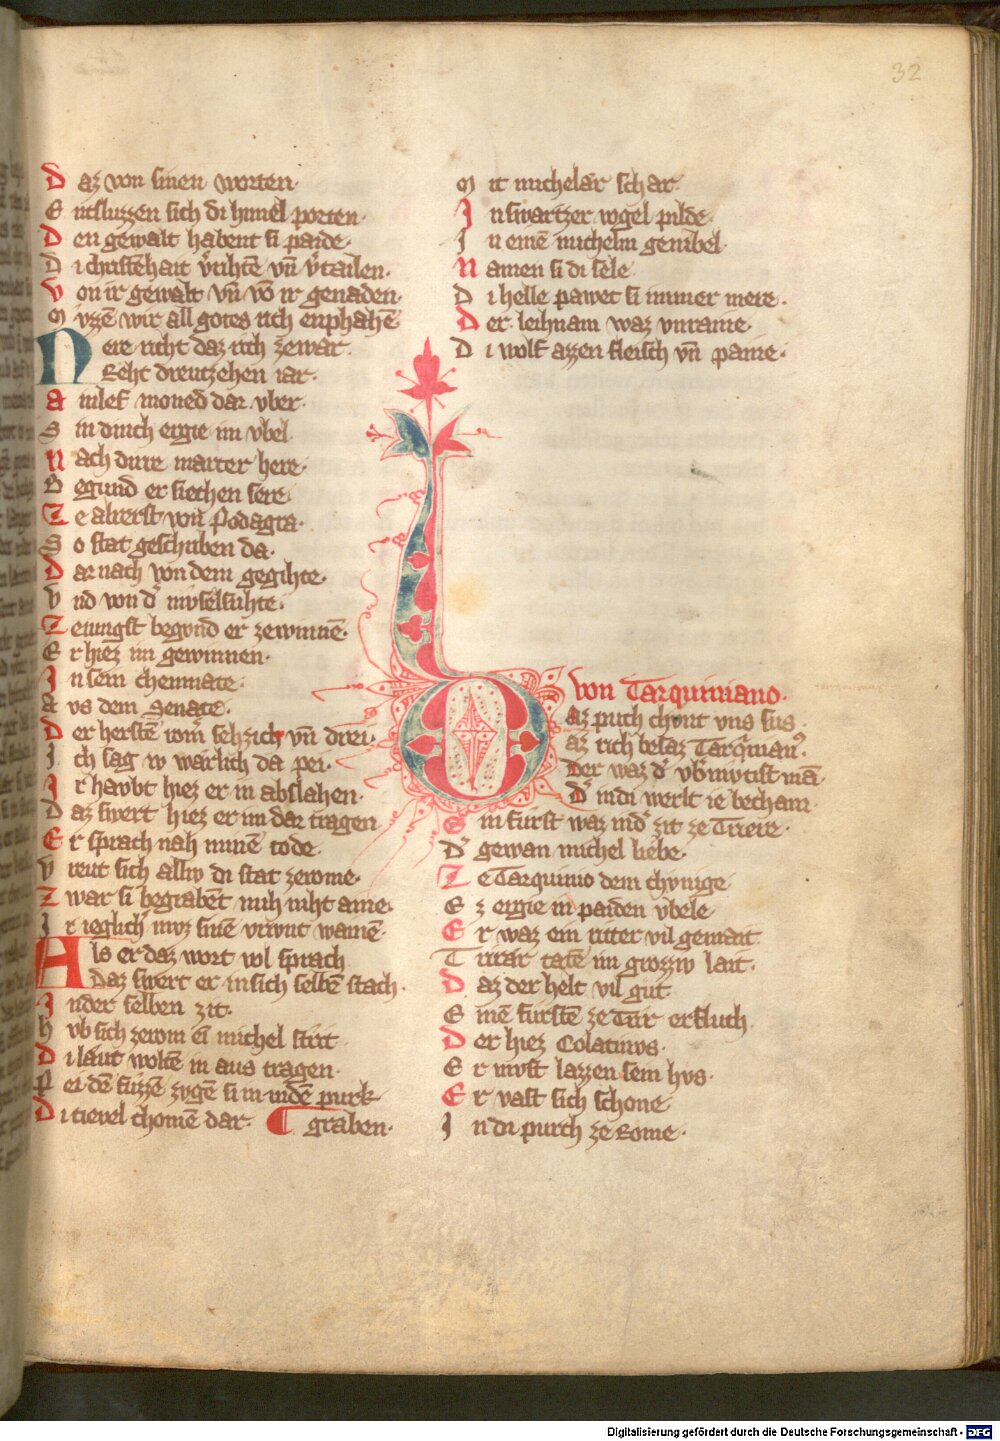 32
Daz von sinen worten·
Entsluzzen sich di himel porten·
Den gewalt habent si paide·
Di christēhait v̾rihtē vn̄ v̾tailen·
Von ir gewalt vn̄ vō ir genaden·
Mvzzē wir all gotes rich enphahē
Nere richt daz rich zewar·
Reht dreutzehen iar·
ainlef moned dar vber·
Sin durch ergie im vbel
Nach dirre marter here·
Begund er siechen sere
Ze alrerst von Podagra·
So stat geschriben da·
Dar nach von dem gegihte·
Vnd von d̾ myselsuhte·
Ze iungst begvnd er zewinnē·
Er hiez im gewinnen·
In sein chemnate·
avs dem Senate·
Der herstē wīm̄ sehzich vn̄ drei·
Ich sag iv wærlich da pei·
Ir havbt hiez er in abslahen·
Daz swert hiez er im dar tragen
Er sprach nah minē tode
Vrevt sich alliv di stat zerome·
Zwar si begrabēt mih niht aine·
Ir ieglich̾ mvz sinē vrivnt wainē·
Als er daz wort vol sprach
Daz swert er in sich selbē stach·
Inder selben zit·
hvb sich zerom ei michel strit
Di laut woltē in aus tragen·
Pei dē fuzzē zvgē si in in dē purk
Di tievel chomē dar· graben·
Mit michelær schar·
In swartzer vogel pilde·
In einē michelm genibel·
Namen si di sele
Di helle pawet si immer mere·
Der leihnam waz vnraine·
Di wolf azzen fleisch vn̄ paine·
Von Tarquiniano·
Daz puch chvnt vns sus
az rich besaz Tarqīnian⁹·
Der waz d̾ vb̾mvtist mā
D̾ in di werlt ie becham·
Ein furst waz in d̾ zit ze Triere·
D̾ gewan michel liebe·
Ze Tarquinio dem chvnige
Ez ergie in paiden vbele
Er waz ein ritter vil gemait·
Trirær tatē im grozziv lait·
Daz der helt vil gut
Einē furstē ze Trir ersluch·
Der hiez Colatinvs·
Er mvst lazzen sein hvs·
Er vast sich schone
In di purch ze Rome·
Digitalisierung gefördert durch die Deutsche Forschungsgemeinschaft - DFG